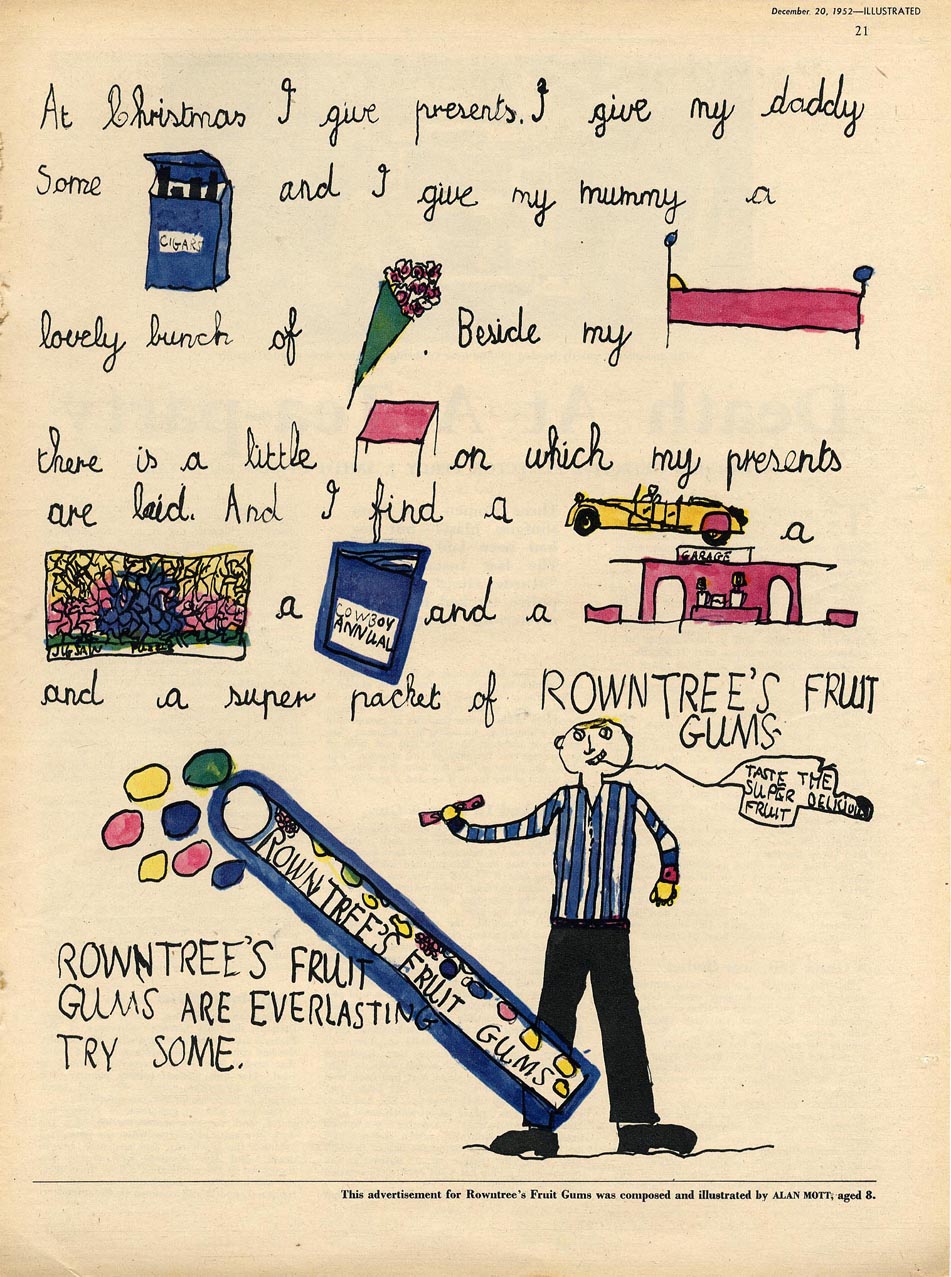 December 20, 1952—ILLUSTRATED
21
At Christmas I give presents. I give my daddy
Some and I give my mummy a
CIGARS
lovely bunch of . Beside my
there is a little on which my presents
are laid. And I find a a
GARAGE
JIGSAW PUZZLE a COWBOY ANNUAL and a
and a super packet of ROWNTREE'S FRUIT
GUMS
TASTE THE
SUPER DELICIOUS
FRUIT
ROWNTREE'S FRUIT GUMS
ROWNTREE'S FRUIT
GUMS ARE EVERLASTING
TRY SOME.
This advertisement for Rowntree's Fruit Gums was composed and illustrated by ALAN MOTT, aged 8.